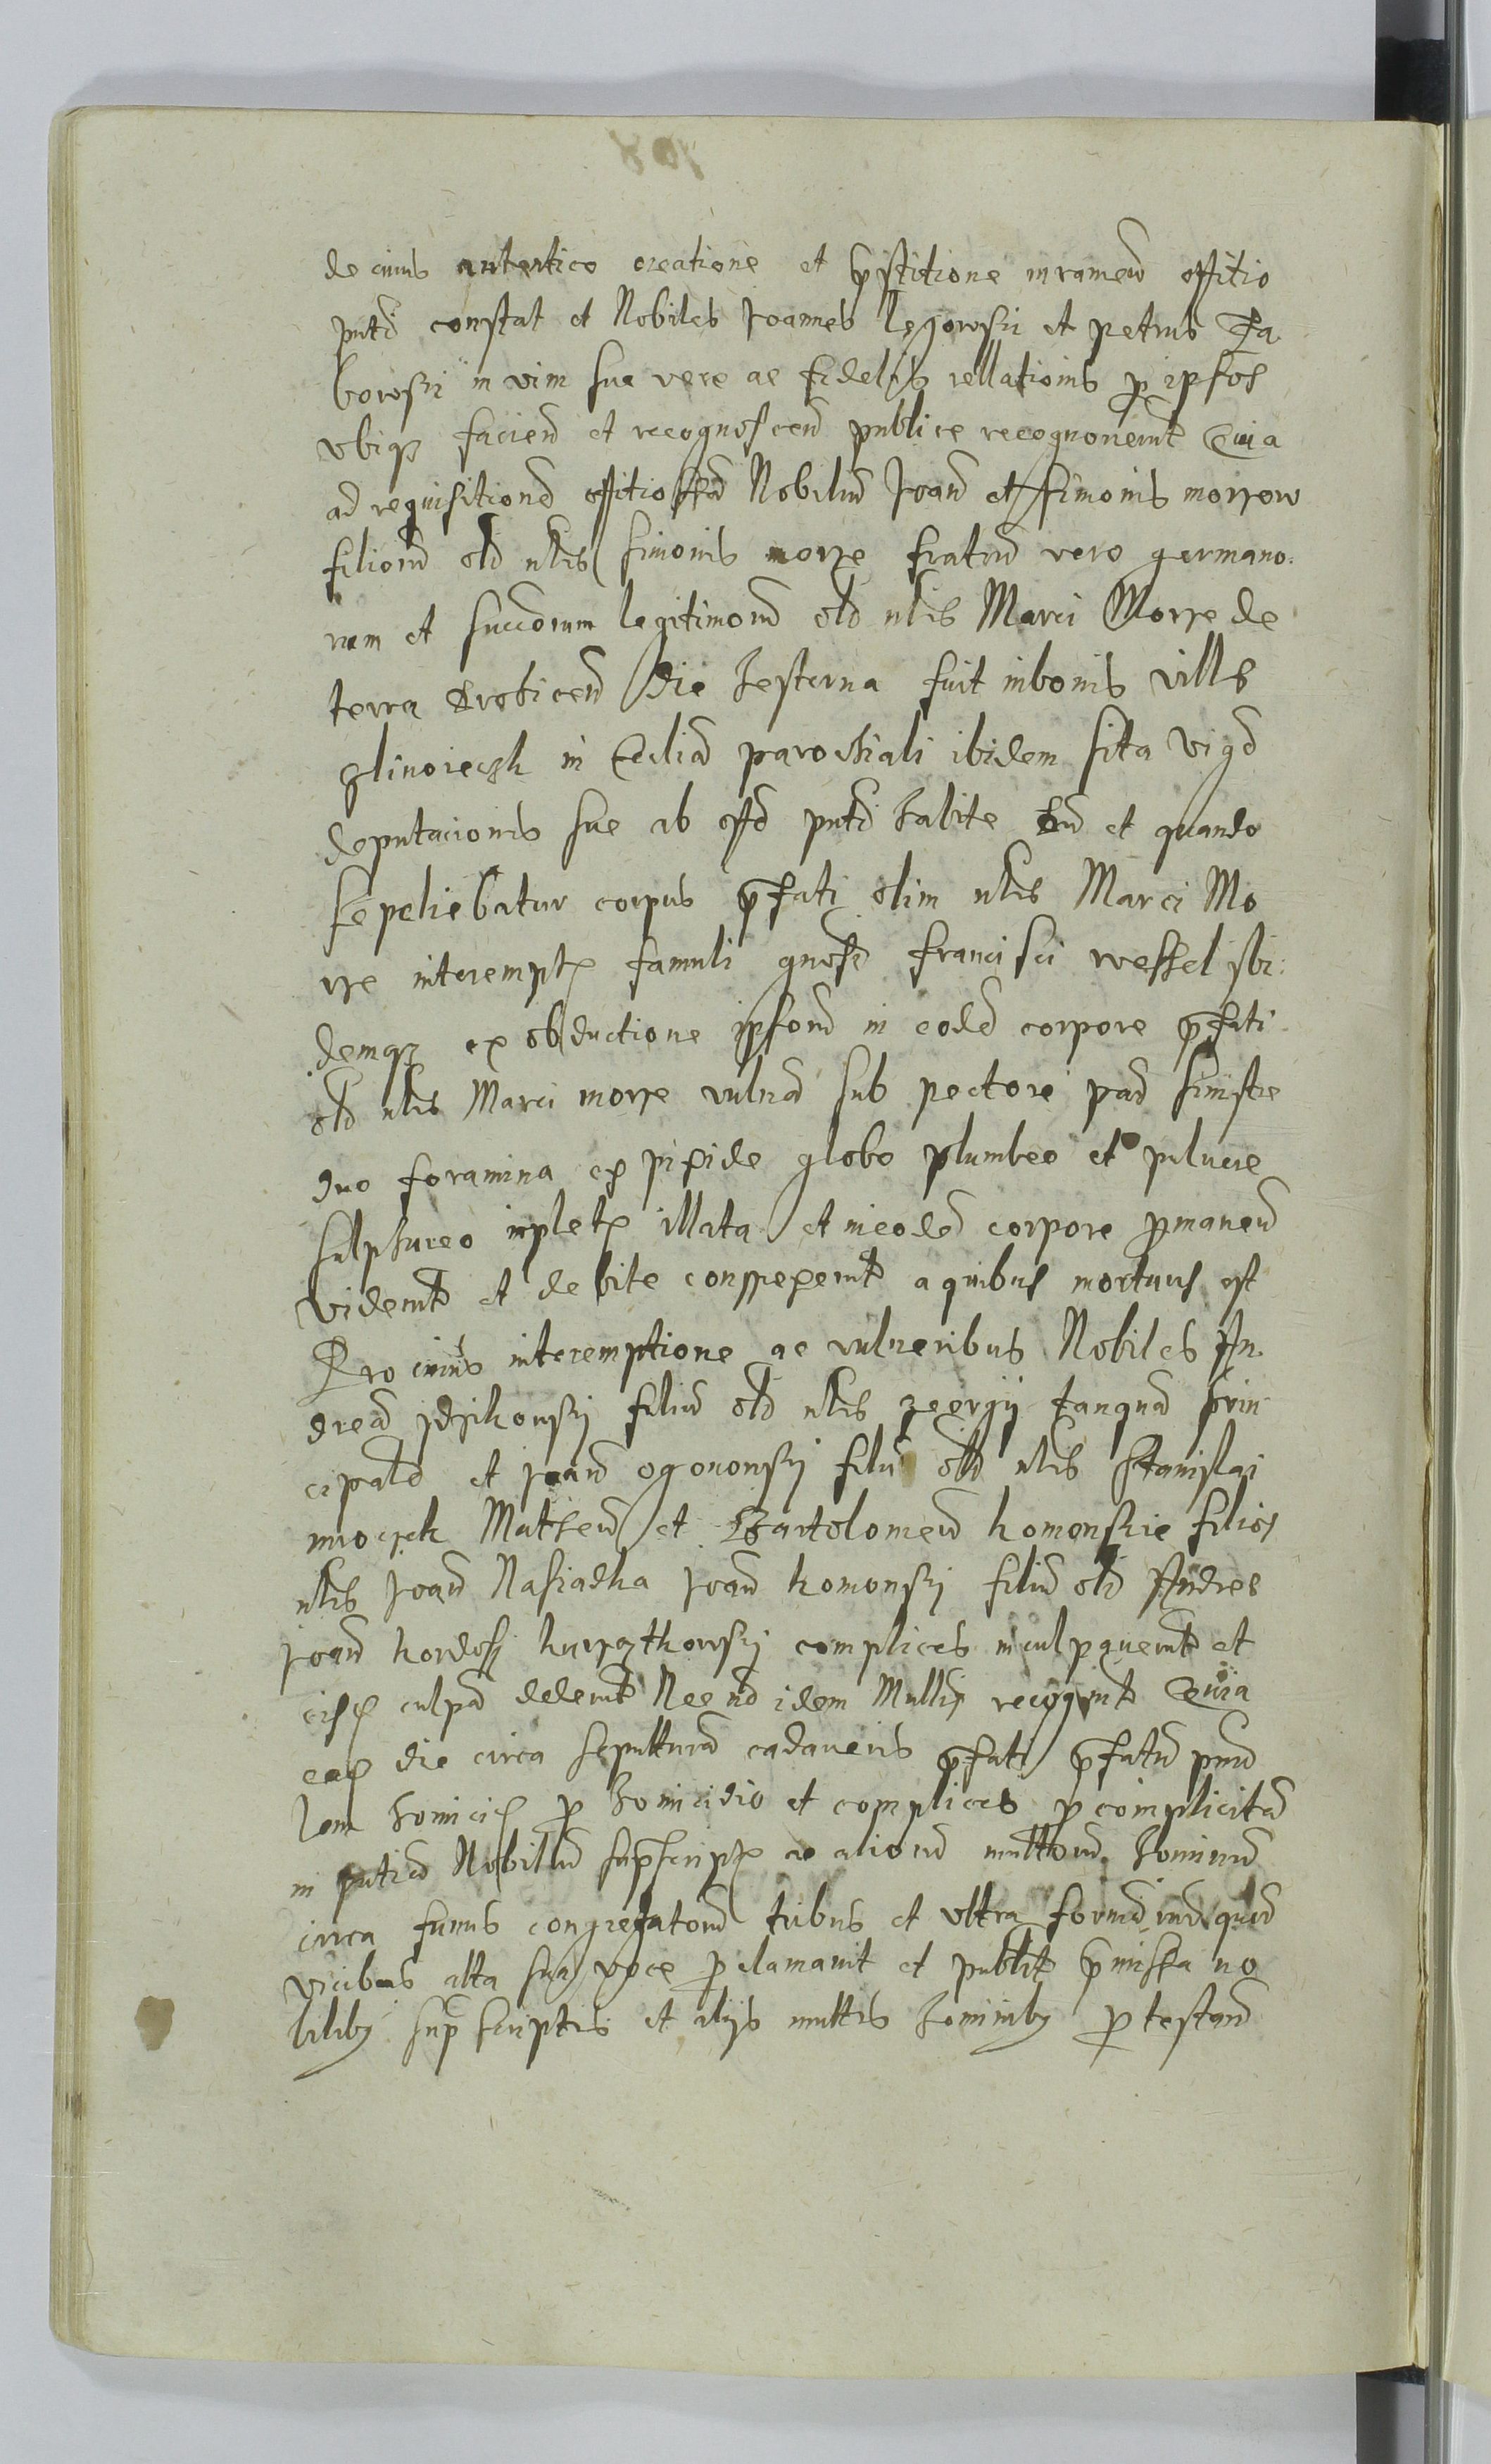 de cuius autentico creatione et prestitione iuramen offitio
pntd constat et Nobiles Joannes legowsky et petrus Za
borowsky in vim sua vere ac fidelis rellationis per ipsos
vbiqz facien et recognoscen publice recognouerunt Quia
ad requisitione offitiossa Nobiliu Joan et Simonis morye
filioru old nlis Simonis morye fratru vero germano:
rum et succorum legitimoru old nlis Marci Morye de
terra drohicen die hesterna fuit in bonis villis
glinoieczk in Ecclia parochiali ibidem sita vig
deputacionis sue ab off pntd habite et quando
sepeliebatur corpus pfati olim nlis Marci Mo
rye interempt famuli gnosi francisci wessel ibi:
demqz ex obductione ipsoru in eode corpore pfati
old nlis Marci morye vulnera sub pectore pad sinistre
duo foramina ex pixide globo plumbeo et puluere
sulphureo inplet illata et in eode corpore pmanen
viderunt et debite conspexerunt a quibus mortuus est
Pro cuius interemptione ac vulneribus Nobiles An
drea filiu old nlis georgy tanqua prin
cipale et Joan ogonowsky filiu old nlis Stanislai
mroczek Matheu et Bartolomeu komonskie filios
nlis Joan Nasiadka Joan komonsky filiu old Andree
Joan complices inculpauerunt et
eisd culpa dederunt Nec no idem Mllis recogvit Quia
ead die circa sepultura cadaueris pfati pfatu pnci
lem homicid p homicidio et complices p complicita
in pntia Nobiliu supscript ac alioru multoru hominu
circa funus congregatoru tribus et vltra
vicibus alta sua voce pclamauit et publit pmissa no
biliby supscriptis et alys multis hominiby p testan